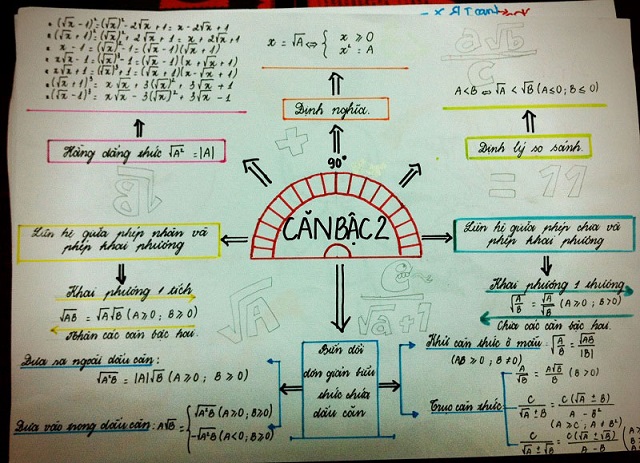 * (√x - 1)² = (√x)² - 2√x + 1 = x - 2√x + 1
* (√x + 1)² = (√x)² + 2√x + 1 = x + 2√x + 1
* x - 1 = (√x)² - 1 = (√x - 1)(√x + 1)
* x√x - 1 = (√x)³ - 1 = (√x - 1)(x + √x + 1)
* x√x + 1 = (√x)³ + 1 = (√x + 1)(x - √x + 1)
* (√x + 1)³ = x√x + 3(√x)² + 3√x + 1
* (√x - 1)³ = x√x - 3(√x)² + 3√x - 1
Hằng đẳng thức √A² = |A|
x = √A ⇔ { x ≥ 0
x² = A
Định nghĩa.
a√b
C
A < B ⇔ √A < √B (A ≤ 0; B ≤ 0)
Định lý so sánh.
+
= 11
√B
90°
CĂN BẬC 2
Liên hệ giữa phép nhân và
phép khai phương
Khai phương 1 tích
√AB = √A√B (A ≥ 0; B ≥ 0)
Nhân các căn bậc hai.
Liên hệ giữa phép chia và
phép khai phương
Khai phương 1 thương
√A/B = √A/√B (A ≥ 0; B > 0)
Chia các căn bậc hai.
√A
C
√a + 1
Biến đổi
đơn giản biểu
thức chứa
dấu căn
Đưa ra ngoài dấu căn:
√A²B = |A|√B (A ≥ 0; B ≥ 0)
Đưa vào trong dấu căn: A√B = { √A²B (A ≥ 0; B ≥ 0)
-√A²B (A < 0; B ≥ 0)
Khử căn thức ở mẫu: √A/B = √AB/|B|
(AB ≥ 0; B ≠ 0)
Trục căn thức
A/√B = A√B/B (B > 0)
C/√A ± B = C(√A ± B)/A - B²
(A ≥ C; A ≠ B²)
C/√A ± √B = C(√A ± √B)/A - B